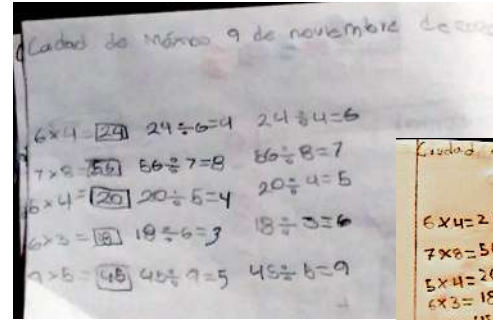 de México 9 de noviembre de
6×4=24 24÷6=4 24÷4=6
7×8=56 56÷7=8 56÷8=7
5×4=20 20÷5=4 20÷4=5
6×3=18 18÷6=3 18÷3=6
9×5=45 45÷9=5 45÷5=9
Ciudad
6×4=2
7×8=5
5×4=2
6×3=18